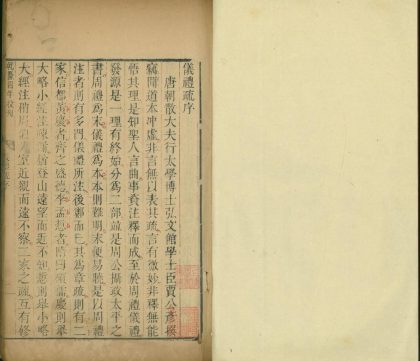 儀禮疏序
唐朝散大夫行太學博士弘文館學士臣賈公彥撰
竊聞道本沖虛非言無以表其疏言有微妙非釋無能
悟其理是知聖人言曲事資注釋而成至於周禮儀禮
發源是一理有終始分為二部並是周公攝政太平之
書周禮為末儀禮為本本則難明末便易曉是以周禮
注者則有多門儀禮所注後鄭而已其為章疏則有二
家信都黃慶者齊之盛德李孟悊者隋曰碩儒慶則舉
大略小經注疏漏猶登山遠望而近不知悊則舉小略
大經注稍周似入室近觀而遠不察二家之疏互有修